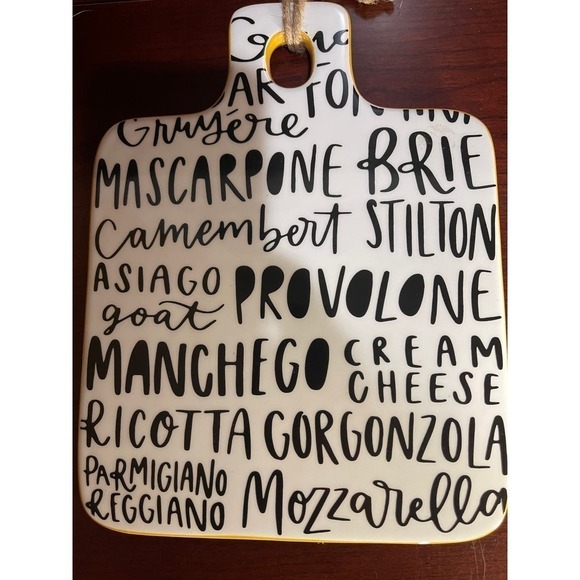 Gruyére
MASCARPONE BRIE
Camembert STILTON
ASIAGO
goat PROVOLONE
MANCHEGO CREAM
CHEESE
RICOTTA GORGONZOLA
PARMIGIANO
REGGIANO Mozzarella